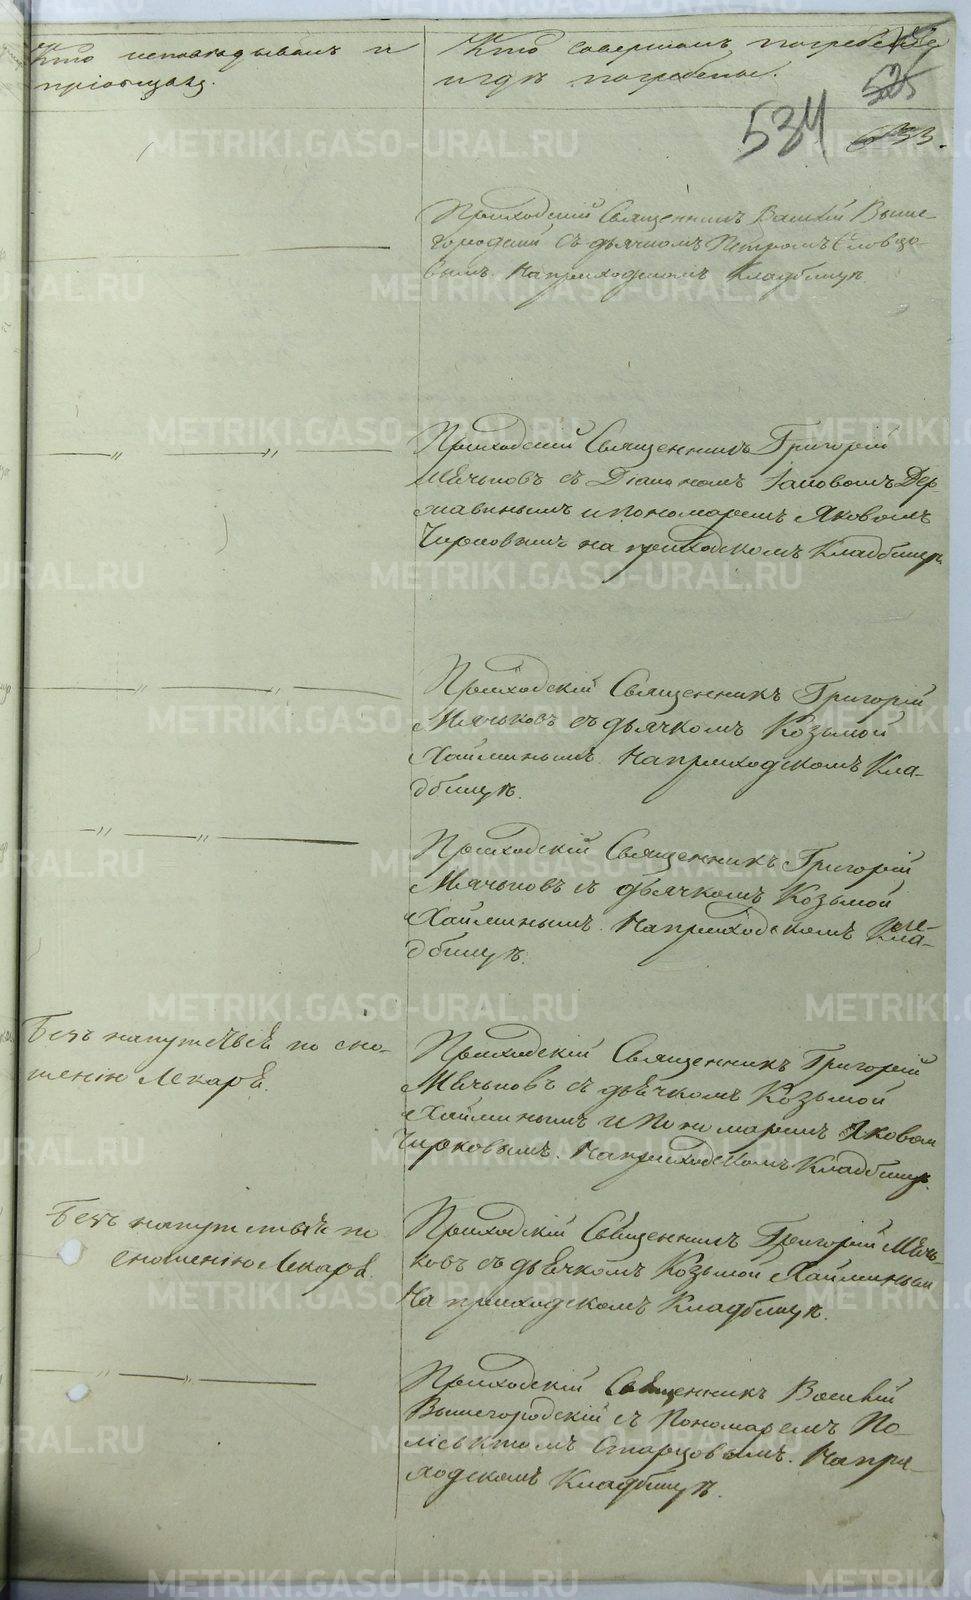 Кто исповѣдывалъ и
пріобщалъ.
Кто совершалъ погребеніе
и гдѣ погребены.
534
525
633.
Приходскій Священникъ Василій Выше-
городскій съ дьячкомъ Петромъ Словцо-
вымъ. На приходскомъ Кладбищѣ.
Приходскій Священникъ Григорій
Мячьковъ съ Діакономъ Іаковомъ Дер-
жавинымъ и пономаремъ Яковомъ
Чирковымъ на приходскомъ Кладбищѣ
Приходскій Священникъ Григорій
Мячьковъ съ дьячкомъ Козьмой
Хайминымъ. На приходскомъ Кла-
дбищѣ.
Приходскій Священникъ Григорій
Мячьковъ съ дьячкомъ Козьмой
Хайминымъ. На приходскомъ Кла-
дбищѣ.
Безъ напутствія по сно-
шенію Лекаря.
Приходскій Священникъ Григорій
Мячьковъ съ дьячкомъ Козьмой
Хайминымъ и Пономаремъ Яковом
Чирковымъ. На приходскомъ Кладбищѣ.
Безъ напутствія по
сношенію Лекаря.
Приходскій Священникъ Григорій Мячь-
ковъ съ дьячкомъ Козьмой Хайминым
На приходскомъ Кладбищѣ.
Приходскій Священникъ Василій
Вышегородскій съ Пономаремъ По-
Старцовымъ. На при-
ходскомъ Кладбищѣ.
METRIKI.GASO-URAL.RU